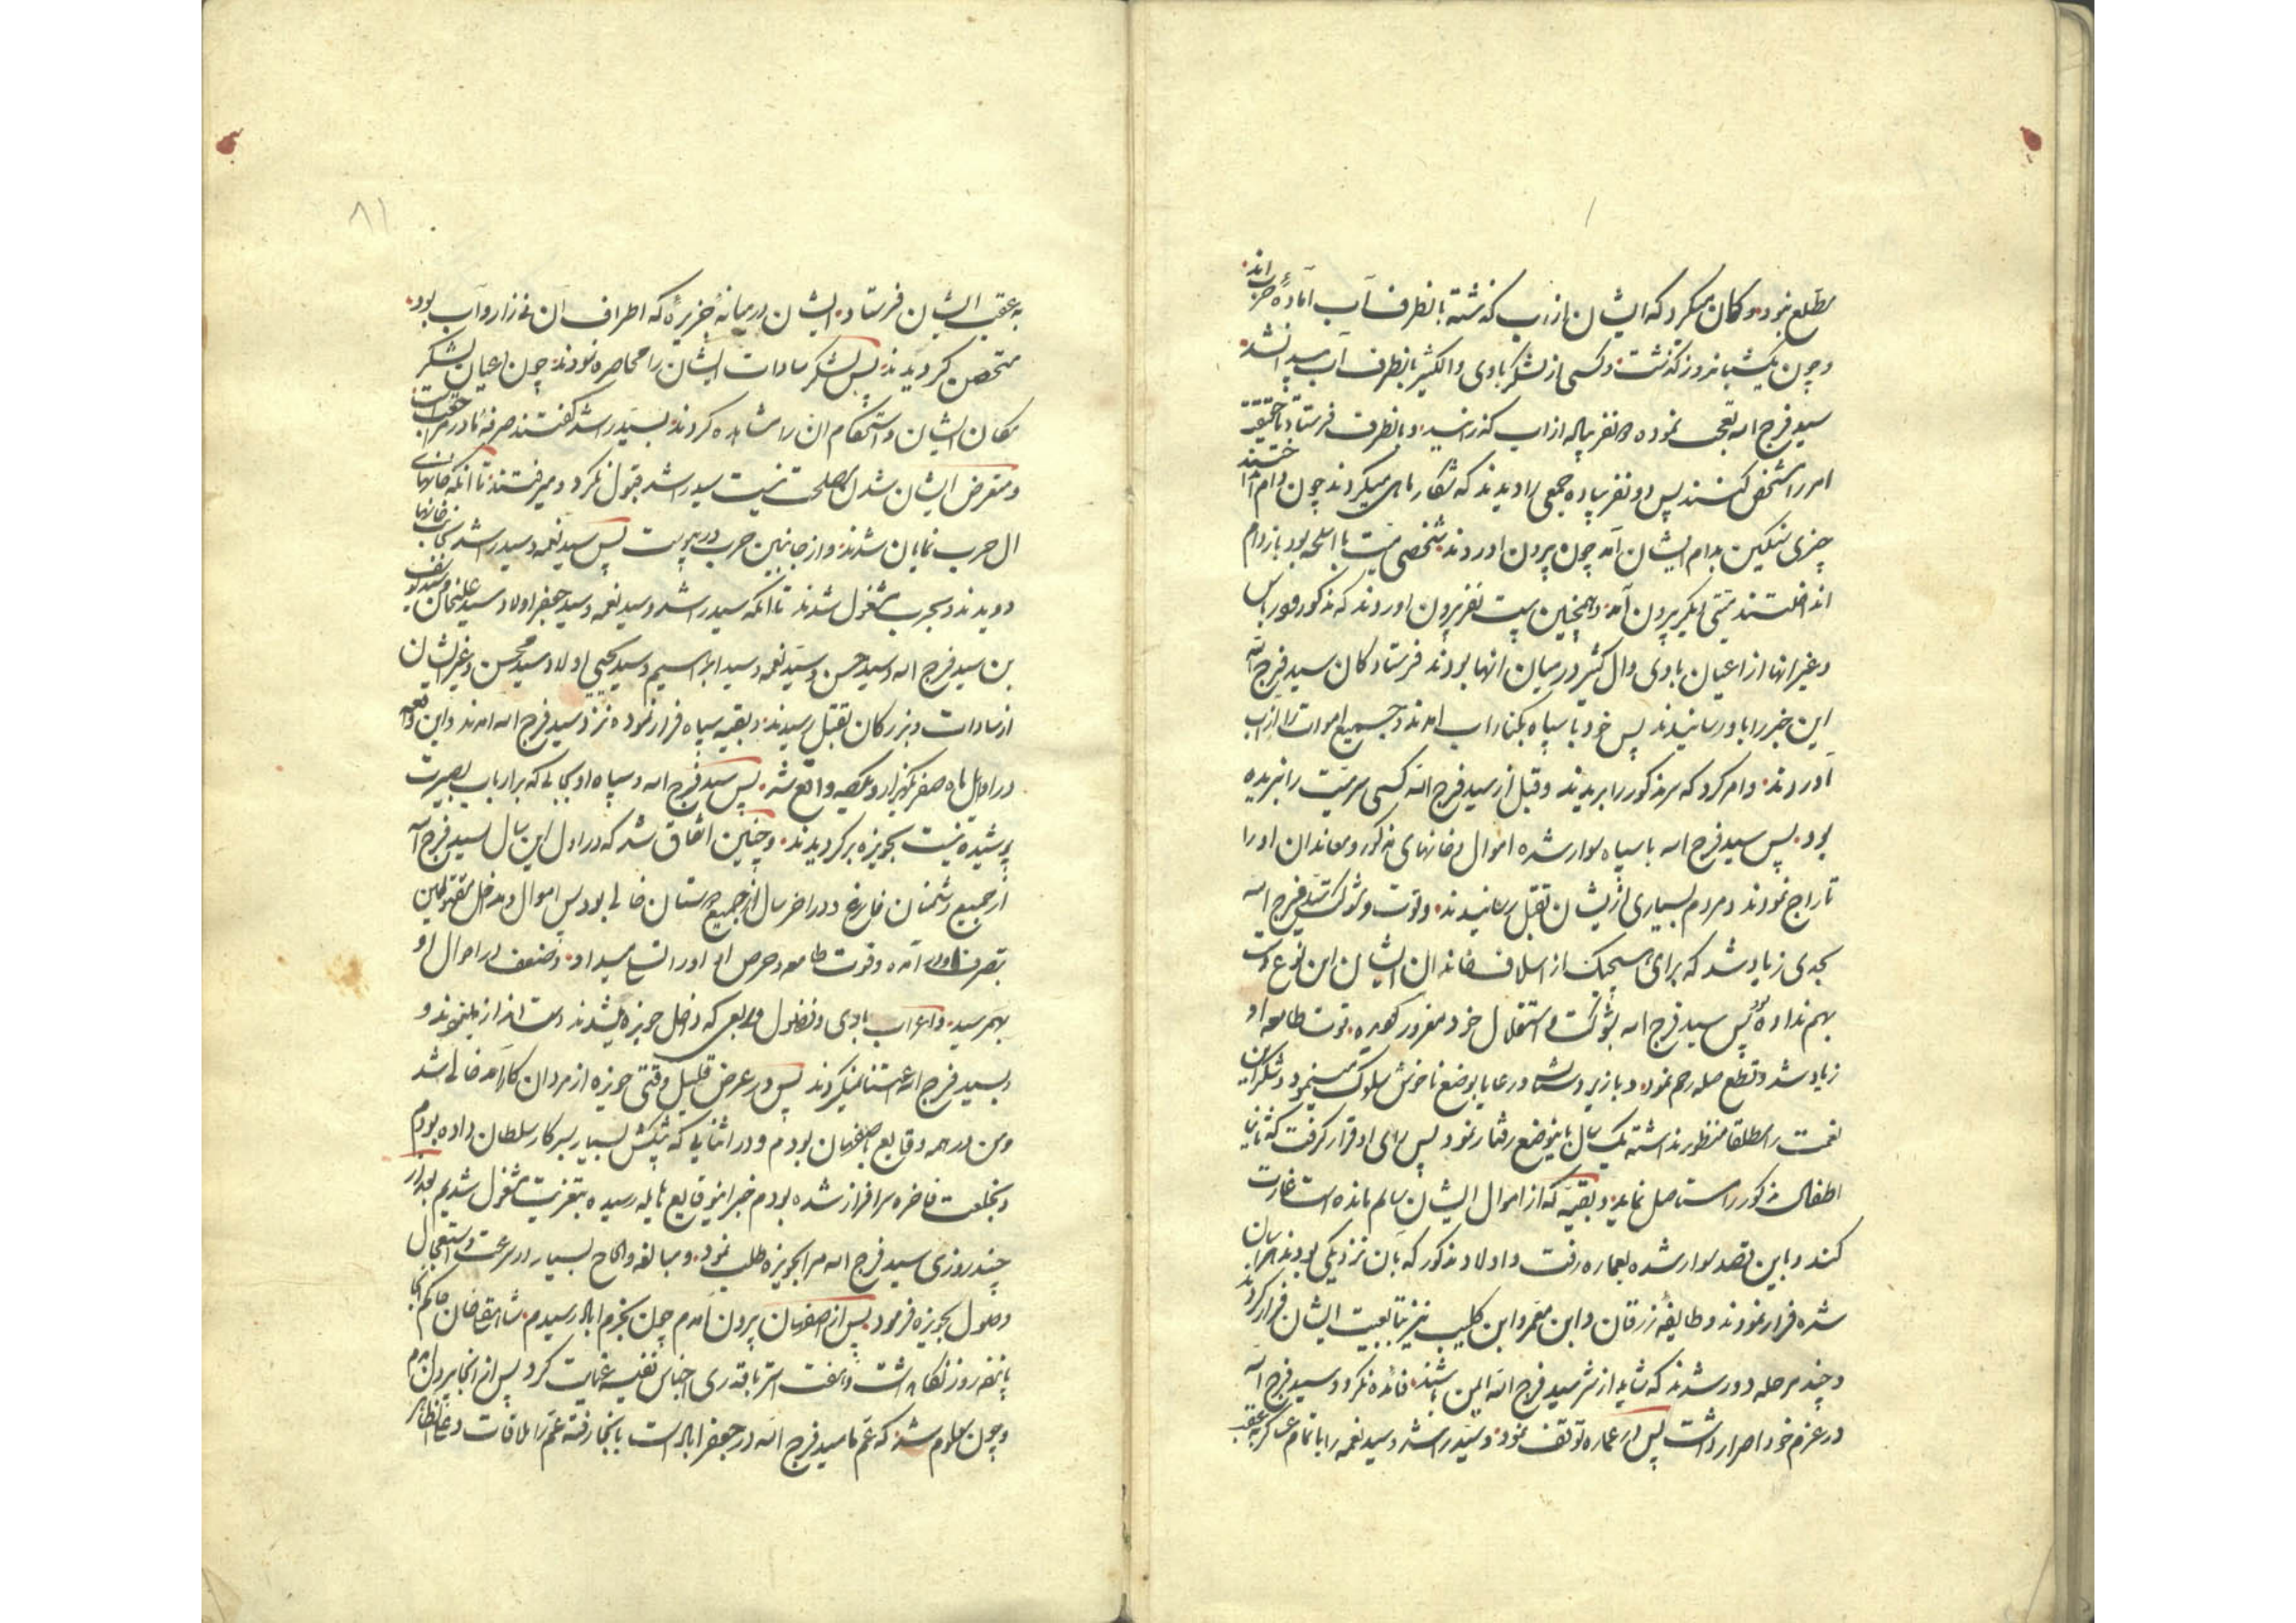 مطلع نبود و کمان میکرد که ایشان از اب کذشته بانطرف آب آمادهٔ حرب اند
و چون یکشبانروز کذشت و کسی از لشکر بادی و ال کثیر بانطرف آب پیدا نشد
سید فرج اله تعجب نموده دو نفر پیاله از اب کذرانید و بانطرف فرستاد تا حقیقت
امر را مشخص کنند پس دو نفر پیاده جمعی را دیدند که شکار ماهی میکردند چون دام انداختند
چیزی سنکین بدام ایشان آمد چون بیرون اوردند شخصی میت با اسلحه بود باز دام
انداختند میتی دیکر بیرون آمد و همچنین بیست نفر بیرون اوردند که مذکور و عباس
و غیر انها از اعیان بادی و ال کثیر در میان انها بودند فرستادکان سید فرج اله
این خبر را باو رسانیدند پس خود با سپاه بکنار اب امدند و جمیع اموات را از اب
آوردند و امر کرد که سر مذکور را بریدند و قبل از سید فرج اله کسی سر میت را نبریده
بود پس سید فرج اله با سپاه سوار شده اموال و خانهای مذکور و معاندان او را
تاراج نمودند و مردم بسیاری از ایشان بقتل رسانیدند و قوت و شوکت سید فرج اله
بحدی زیاد شد که برای هیچیک از اسلاف خاندان ایشان این نوع دست
بهم نداده بود پس سید فرج اله بشوکت و استقلال خود مغرور کردیده قوت طامعه او
زیاد شد و قطع صله رحم نمود و با زیردستان و رعایا بوضع ناخوش سلوک مینمود و شکران
نعمت را مطلقا منظور نداشته یک سال باینوضع رفتار نمود پس رای او قرار کرفت که ثانیا
اطفال مذکور را مستاصل نماید و بقیهٔ که از اموال ایشان سالم مانده است غارت
کند و باین قصد سوار شده بعماره رفت و اولاد مذکور که بان نزدیکی بودند هراسان
شده فرار نمودند و طایفهٔ زرقان و ابن معمر و ابن کلیب نیز بتابعیت ایشان فرار کردند
و چند مرحله دور شدند که شاید از شر سید فرج اله ایمن باشند فائده نکرد و سید فرج اله
در عزم خود اصرار داشت پس در عماره توقف نمود و سید راشد و سید نعمه را با تمام عساکر به عقب
۸۱
به عقب ایشان فرستاد ایشان در میانهٔ جزیرهٔ که اطراف آن نی زار و آب بود
متحصن کردیدند پس لشکر سادات ایشان را محاصره نمودند چون اعیان لشکر
مکان ایشان و استحکام ان را مشاهده کردند بسید راشد کفتند صرفهٔ ما در مراجعت است
و متعرض ایشان شدن مصلحت نیست سید راشد قبول نکرد و میرفتند تا انکه خانهای
ال حرب نمایان شدند و از جانبین حرب در پیوست پس سید نعمه و سید راشد بجانب خانها
دویدند و بحرب مشغول شدند تا انکه سید راشد و سید نعمه و سید جعفر اولاد سید علیخان و سید یوسف
بن سید فرج اله و سید حسن و سید نعمه و سید ابراهیم و سید یحیی اولاد سید محسن و غیر ایشان
از سادات و بزرکان بقتل رسیدند و بقیه سپاه فرار نموده نزد سید فرج اله امدند و این واقعه
در اوایل ماه صفر یکهزار و یکصد واقع شد پس سید فرج اله و سپاه او بحالی که بر ارباب بصیرت
پوشیده نیست بحویزه برکردیدند و چنین اتفاق شد که در اول این سال سید فرج اله
از جمیع دشمنان فارغ و در اخر سال از جمیع دوستان خالی بود پس اموال و مداخل مقتولین
بتصرف او در آمده و قوت طامعه و حرص او را اتساع میداد و ضعف در احوال او
بهمرسید و اعراب بادی و فضول و ربعی که داخل حویزه میشدند دست اندازی مینمودند و
بسید فرج اله اعتنا نمیکردند پس در عرض قلیل وقتی حویزه از مردان کارآمد خالی شد
و من در همه وقایع باصفهان بودم و در اثنایی که پیشکش بسیار بسرکار سلطان داده بودم
و بخلعت فاخره سرافراز شده بودم خبر اینوقایع هایله رسیده بتعزیت مشغول شدیم بعد از
چند روزی سید فرج اله مرا بحویزه طلب نمود و مبالغه و الحاح بسیار در سرعت و استعجال
وصول بحویزه فرمود پس از اصفهان بیرون آمدم چون بخرم اباد رسیدم حاکم انجا
پانزده روز نکاهداشت و هفت استر باقدری اجناس نفیسه عنایت کرد پس از انجا بیرون آمدم
و چون معلوم شد که عم ما سید فرج اله در جعفر اباد است بانجا رفته عم را ملاقات